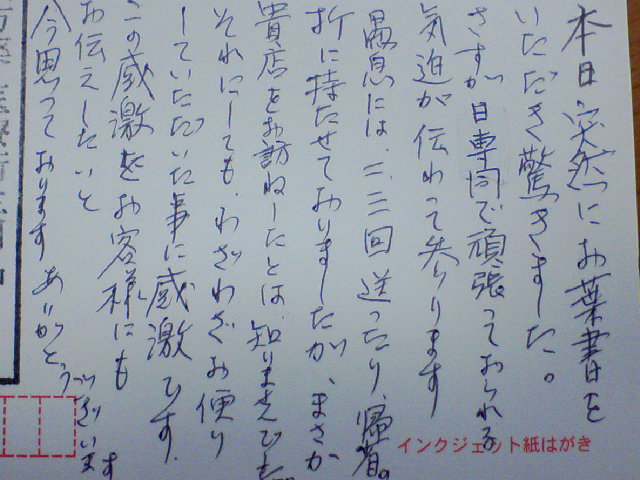 本日突然にお葉書を
いただき驚きました。
さすが日専同で頑張っておられる
気迫が伝わって参ります
愚息には、二、三回送ったり、帰省の
折に持たせておりましたが、まさか
貴店をお訪ねしたとは、知りませんでした。
それにしても、わざわざお便り
していただいた事に感激です。
この感激をお客様にも
お伝えしたいと
今思っております ありがとうございます
インクジェット紙はがき